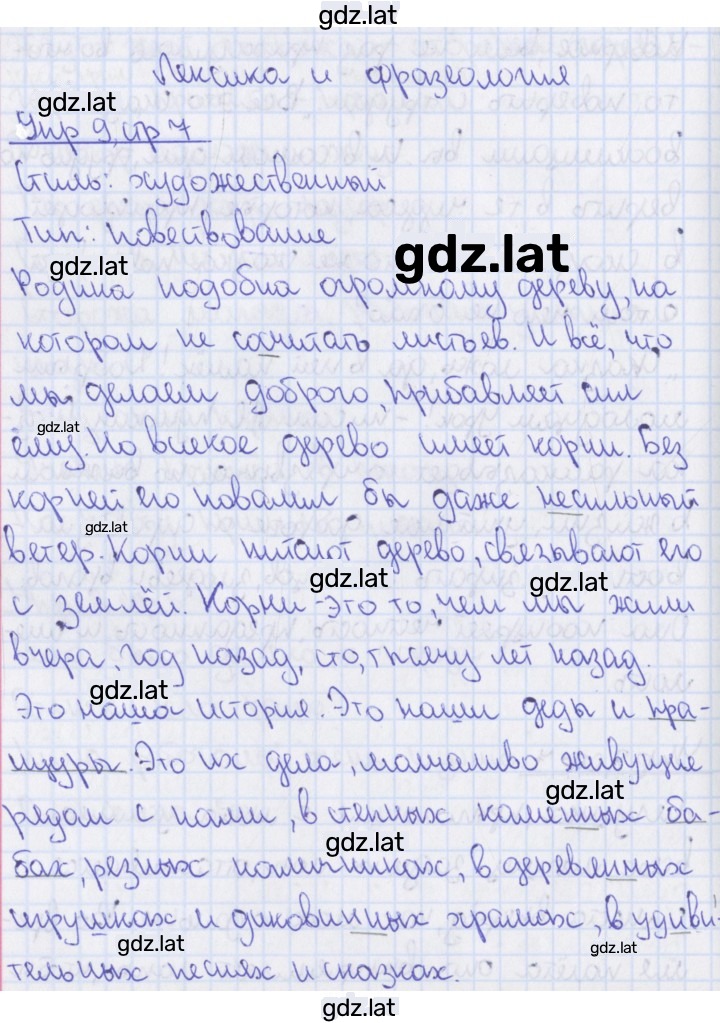 gdz.lat
Лексика и фразеология
gdz.lat
Упр 9, стр 7
Стиль: художественный
Тип: повествование
gdz.lat
gdz.lat
Родина подобна огромному дереву, на
котором не сочитать листьев. И всё, что
мы делаем доброго, прибавляет сил
gdz.lat
ему. Но всякое дерево имеет корни. Без
корней его повалил бы даже несильный
gdz.lat
ветер. Корни питают дерево, связывают его
gdz.lat
gdz.lat
с землёй. Корни - это то, чем мы жили
вчера, год назад, сто, тысячу лет назад.
gdz.lat
Это наша история. Это наши деды и пра-
щуры. Это их дела, молчаливо живущие
gdz.lat
рядом с нами, в степных каменных ба-
gdz.lat
бах, резных наличниках, в деревянных
игрушках и диковинных храмах, в удиви-
gdz.lat
gdz.lat
тельных песнях и сказках.
gdz.lat